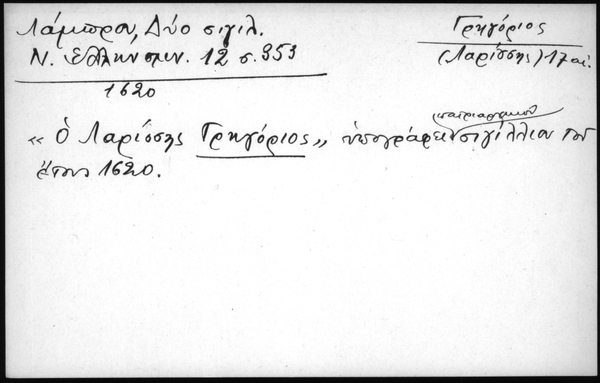 Λάμπρου, Δύο σιγιλ.
Ν. Ελληνομν. 12 σ. 353
1620
Γρηγόριος
(Λαρίσσης) 17 αι.
« Ὁ Λαρίσσης Γρηγόριος » ὑπογράφει πατριαρχικὸν σιγίλλιον τοῦ
ἔτους 1620.